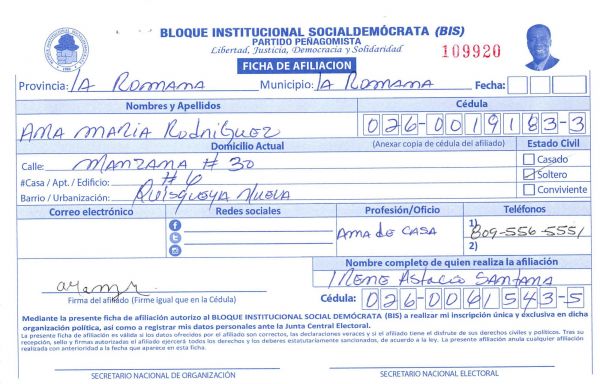 BLOQUE INSTITUCIONAL SOCIALDEMÓCRATA (BIS)
PARTIDO PEÑAGOMISTA
Libertad, Justicia, Democracia y Solidaridad
109920
FICHA DE AFILIACION
Provincia: La Romana Municipio: La Romana Fecha:
Nombres y Apellidos Cédula
Ana Maria Rodriguez 026-0019183-3
Domicilio Actual (Anexar copia de cédula del afiliado) Estado Civil
Calle: Manzana # 30 Casado
#Casa / Apt. / Edificio: # 6 Soltero
Barrio / Urbanización: Quisqueya Nueva Conviviente
Correo electrónico Redes sociales Profesión/Oficio Teléfonos
Ama de Casa 1) 809-556-5551
2)
Nombre completo de quien realiza la afiliación
Irene Astacio Santana
Firma del afiliado (Firme igual que en la Cédula) Cédula: 026-0061543-5
Mediante la presente ficha de afiliación autorizo al BLOQUE INSTITUCIONAL SOCIAL DEMÓCRATA (BIS) a realizar mi inscripción única y exclusiva en dicha
organización política, así como a registrar mis datos personales ante la Junta Central Electoral.
La presente ficha de afiliación es válida si los datos ofrecidos por el afiliado son correctos, las declaraciones veraces y si el afiliado tiene el disfrute de sus derechos civiles y políticos. Tras su
recepción, sello y firmas autorizadas el afiliado ejercerá todos los derechos y los deberes estatutariamente sancionados, de acuerdo a la ley. La presente afiliación anula cualquier afiliación
realizada con anterioridad a la fecha que aparece en esta ficha.
SECRETARIO NACIONAL DE ORGANIZACIÓN SECRETARIO NACIONAL ELECTORAL